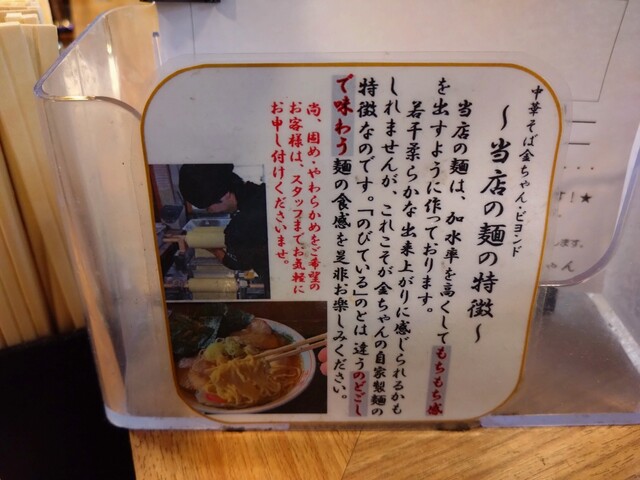 中華そば金ちゃん・ビヨンド
～当店の麺の特徴～
当店の麺は、加水率を高くしてもちもち感
を出すように作っております。
若干柔らかな出来上がりに感じられるかも
しれませんが、これこそが金ちゃんの自家製麺の
特徴なのです。「のびている」のとは違うのどごし
で味わう麺の食感を是非お楽しみください。
尚、固め・やわらかめをご希望の
お客様は、スタッフまでお気軽に
お申し付けくださいませ。